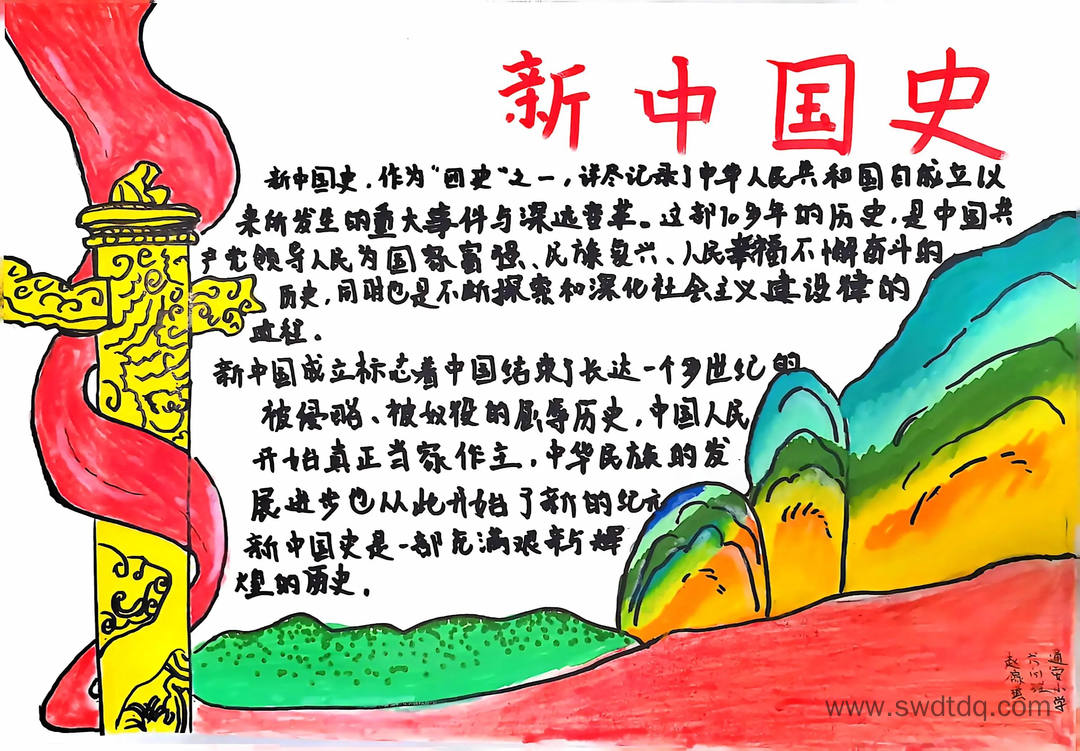 新中国史
新中国史，作为"四史"之一，详尽记录了中华人民共和国自成立以
来所发生的重大事件与深远变革。这部70多年的历史，是中国共
产党领导人民为国家富强、民族复兴、人民幸福不懈奋斗的
历史，同时也是不断探索和深化社会主义建设律的
进程。
新中国成立标志着中国结束了长达一个多世纪的
被侵略、被奴役的屈辱历史，中国人民
开始真正当家作主，中华民族的发
展进步也从此开始了新的纪元
新中国史是一部充满艰辛与辉
煌的历史。
www.swdtdq.com